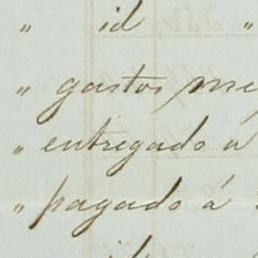 " id "
" gastos me
" entregado a
" pagado á
id